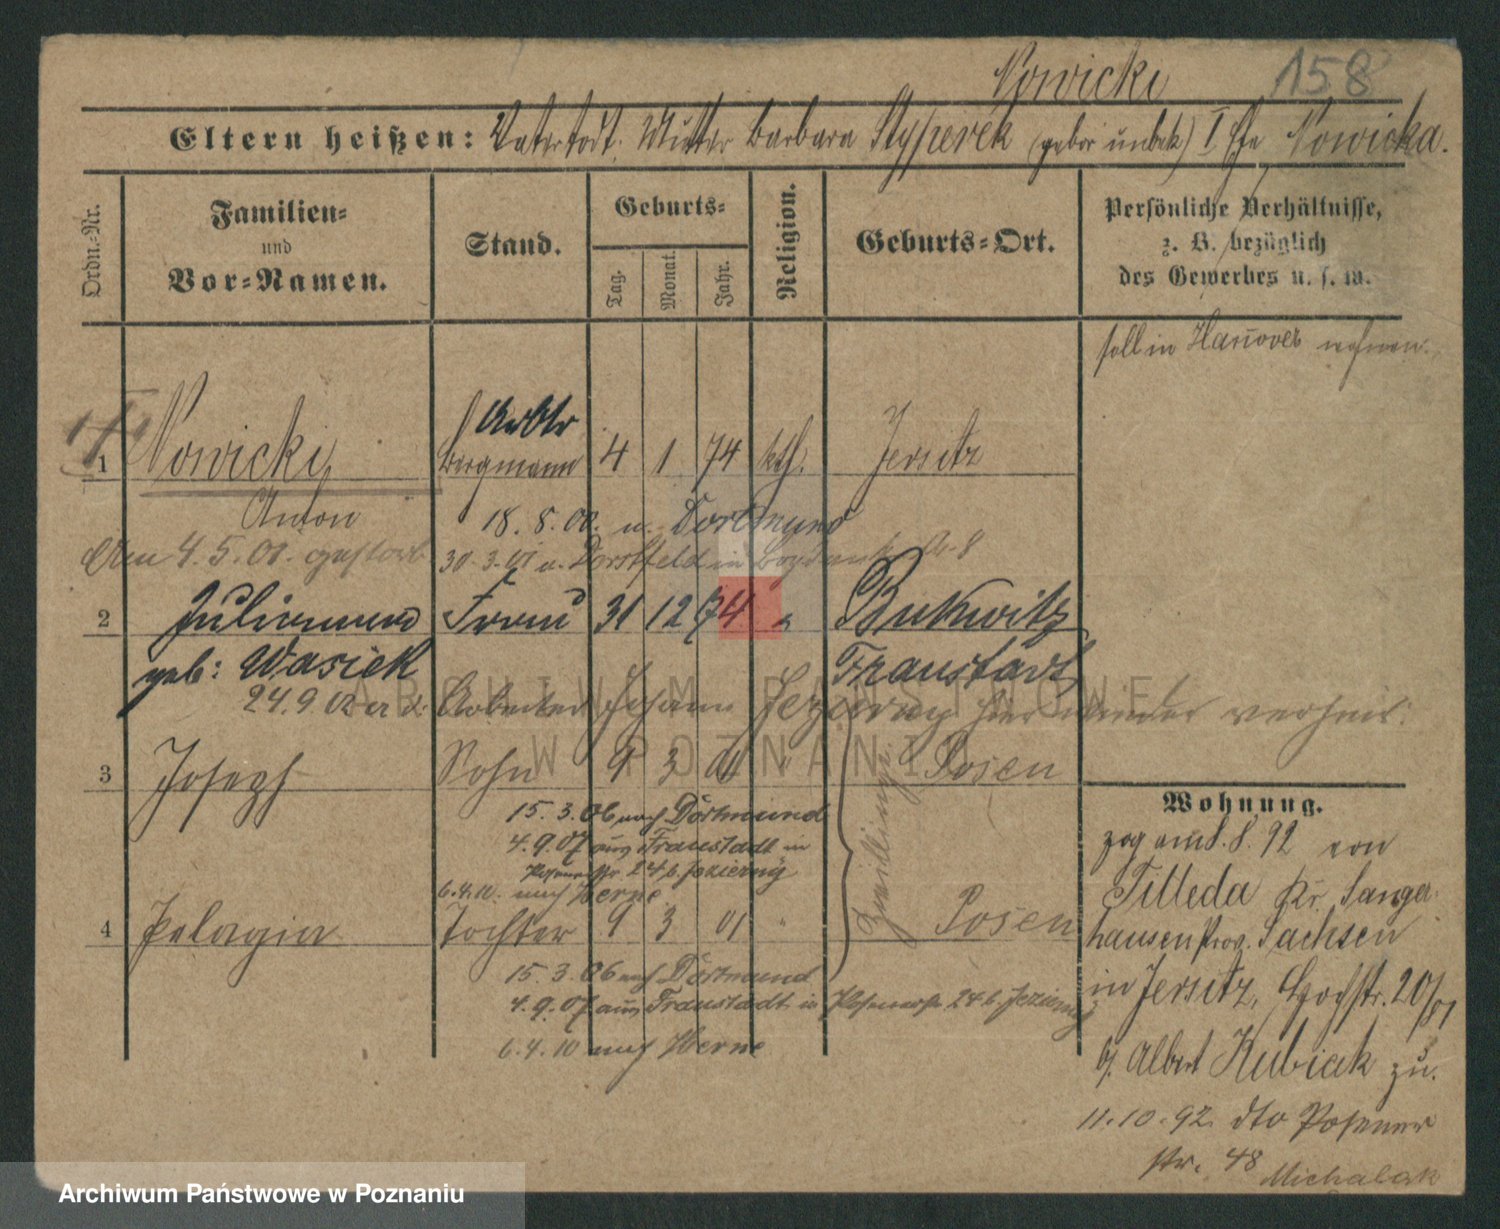 Nowicki 158
Eltern heißen: Vater todt. Mutter Barbara Styperek (gebor unbek) I Ehe Nowicka.
Ordn.-Nr.
Familien-
und
Vor-Namen.
Stand.
Geburts-
Tag.
Monat.
Jahr.
Religion.
Geburts-Ort.
Persönliche Verhältnisse,
z. B. bezüglich
des Gewerbes u. s. w.
soll in Hanover wohnen.
Arbtr
1 Nowicki, Bergmann 4 1 74 kth. Jersitz
Anton
18. 8. 00. n. Dortmund
Am 4.5.01. gestorb
30.3.01 v. Dorstfeld in
2 Julianna Frau 31 12 74 " Bukwitz
geb: Wasiek Fraustadt
24.9.02 Arbeiter Johann Jezierny hier wieder verheir.
3 Joseph Sohn 9 3 01 " Posen
Zwillinge
15.3.06 nach Dortmund
4.9.07 aus Fraustadt in
Posenerstr. 24 b. Jezierny
6.4.10. nach Herne
4 Pelagia Tochter 9 3 01 " Posen
15.3.06 nach Dortmund
4.9.07 aus Fraustadt in Posenerstr 24 b. Jezierny
6.4.10 nach Herne
Wohnung.
zog am 8.8.92 von
Tilleda Kr. Sanger-
hausen Prov. Sachsen
in Jersitz, 20/
b/. Albert Kubiak zu.
11.10.92. dto Posener
str. 48 Michalak
ARCHIWUM PAŃSTWOWE
W POZNANIU
Archiwum Państwowe w Poznaniu